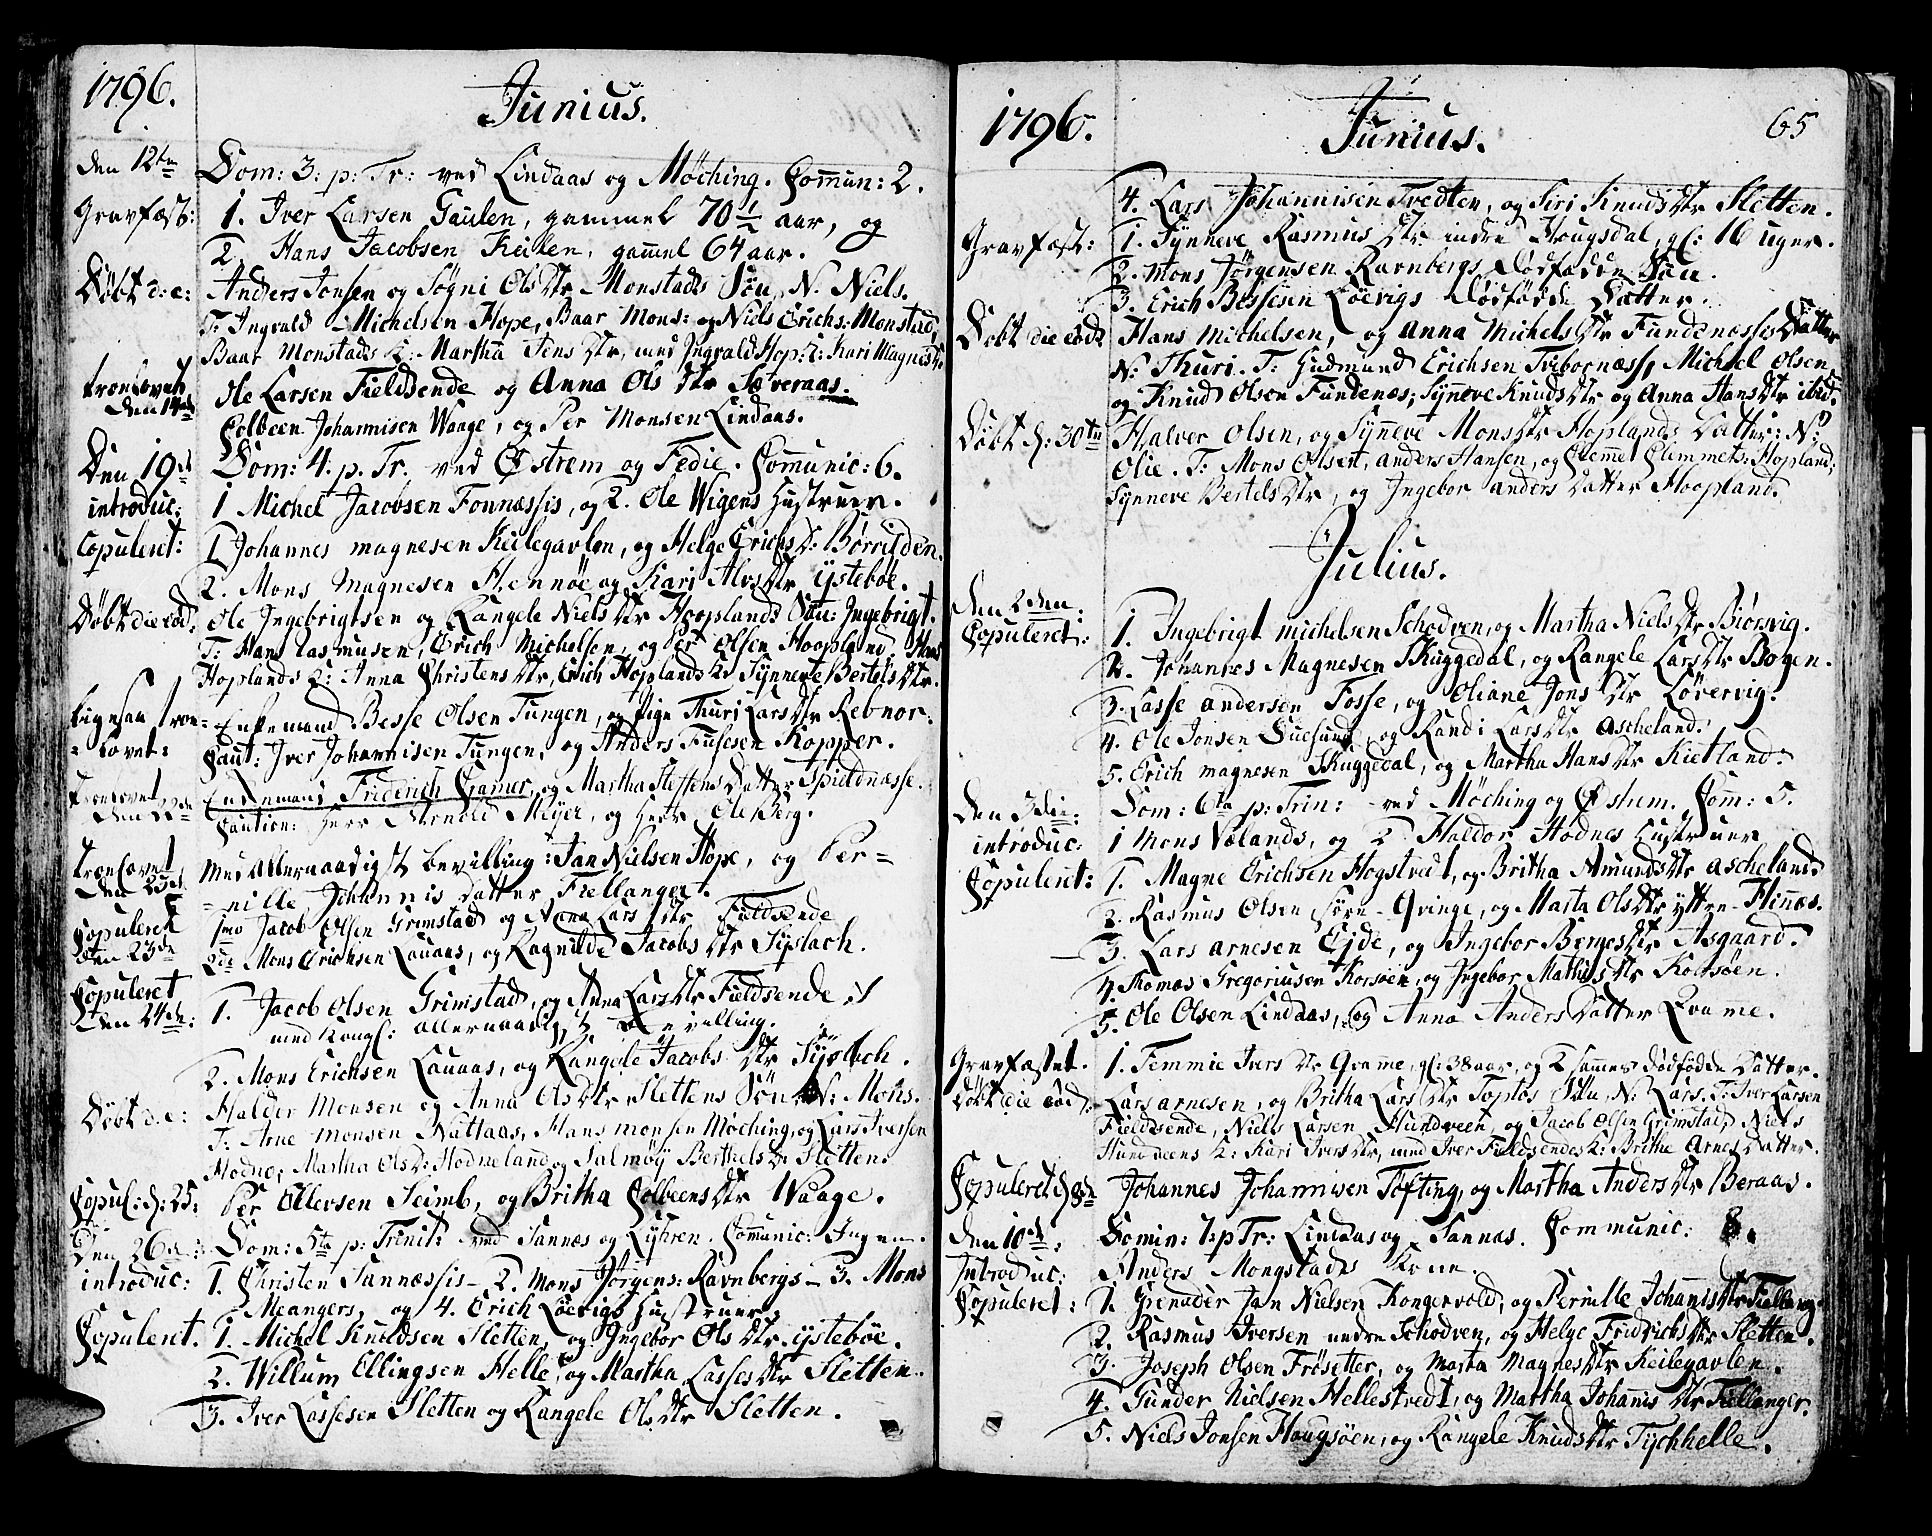 1796.
Junius.
den 12te Dom: 3: p: Tr: ved Lindaas og Møching. Commun: 2.
Gravfæst: 1. Iver Larsen Gaulen, gammel 70 1/2 aar, og
2. Hans Jacobsen Keilen, gammel 64 aar.
Døbt d: e: Anders Jonsen og Søgni Ols Dtr Monstads Søn, N. Niels.
T: Ingvald Michelsen Hope, Baar Mons: og Niels Erichs: Monstad,
Baar Monstads K: Martha Jens Dtr, med Ingvald Hop: K: Kari Magnes Dr.
trolovet Ole Larsen Fieldsende og Anna Ols Dtr Soveraas.
den 14de Colbeen Johannisen Waage, og Per Monsen Lindaas.
Den 19de Dom: 4. p. Tr. ved Østrem og Fedie. Communic: 6.
introduc: 1 Michel Jacobsen Fonnæssis, og 2. Ole Wigens Hustruer.
Copuleret: 1 Johannes Magnesen Keilegavlen, og Helge Erichs D: Børrilden.
2. Mons Magnesen Hennøe og Kari Alvs Dtr Ystebøe.
Døbt die eod: Ole Ingebrigtsen og Rangele Niels Dtr Hooplands Søn: Ingebrigt.
T: Hans Rasmusen, Erich Michelsen, og Per Olsen Hoopland. Hans
Hoplands K: Anna Christens Dtr, Erich Hoplands K: Synneve Bertels Dtr.
ligesaa tro= Enkemand Besse Olsen Tungen, og Pige Thuri Lars Dtr Rebnor.
=lovet: Caut: Iver Johannisen Tungen, og Anders Fusesen Kopper.
trolovet Enkemand Friderich Cramer, og Martha Steffens Datter Spieldnæsse.
den 22de Caution: Herr Arnold Meyer, og Herr Ole Berg.
trolovet Med Allernaadigst bevilling: Jan Nielsen Hope, og Per=
den 23de =nille Johannis Datter Fiellanger.
Copuleret Jacob Olsen Grimstad og Anna Lars Dtr Fieldsende
den 23de 2de Mons Erichsen Lauaas, og Ragnilde Jacobs Dtr Syslach.
Copuleret 1. Jacob Olsen Grimstad, og Anna Lars Dtr Fieldsende
den 24de: med Kongl: allernaadigst Bevilling.
2. Mons Erichsen Lauaas, og Rangele Jacobs Dtr Syslach.
Døbt d: e: Haldor Monsen og Anna Ols Dtr Slettens Søn N: Mons.
T: Arne Monsen Nattaas, Hans Monsen Møching, og Lars Iversen
Hodne, Martha Ols D: Hodneland og Salmøy Berthels Dr Sletten.
Copul: d: 25: Per Ollevsen Seimb, og Britha Colbeens Dtr Waage.
Den 26de: Dom: 5te p: Trinit: ved Sannæs og Lyhren. Communic: Ingen.
introduc: 1. Christen Sannæssis - 2. Mons Jørgens: Ravnbergs - 3. Mons
Meangers, og 4. Erich Løevigs Hustruer.
Copuleret. 1. Michel Knudsen Sletten, og Ingebor Ols Dtr Ystebøe.
2. Willum Ellingsen Helle, og Martha Lasses Dtr Sletten.
3. Iver Lassesen Sletten og Rangele Ols Dtr Sletten.
1796.
Junius.
65
4. Lars Johannisen Tvedten, og Siri Knuds Dtr Sletten.
Gravfæst: 1. Synneve Rasmus Dtr indre Hougsdal, gl: 16 uger.
2. Mons Jørgensen Ravnbergs Dødfødde Søn.
3. Erich Bessesen Løevigs Dødfødde Datter.
Døbt die eod: Hans Michelsen, og Anna Michels Dtr Fundenæssis Datter
N: Thuri. T: Gudmund Erichsen Tvibornæss, Michel Olsen,
og Knud Olsen Fundenæs; Synneve Knuds Dtr og Anna Hans Dtr ibid.
Døbt d: 30te Halver Olsen, og Synneve Mons Dtr Hoplands Datter: N:
Olie. T: Mons Olsen, Anders Hansen, og Clemmet Clemmets: Hopland;
Synneve Bertels Dtr, og Ingebor Anders Datter Hoopland.
Julius.
Den 2den.
Copuleret: 1. Ingebrigt Michelsen Schodven, og Martha Niels Dtr Biørsvig.
2. Johannes Magnesen Skuggedal, og Rangele Lars Dtr Bogen.
3. Lasse Andersen Fosse, og Oliane Jons Dtr Løvervig.
4. Ole Jonsen Duesund, og Randi Lars Dtr Ascheland.
5. Erich Magnesen Skuggedal, og Martha Hans Dtr Kietland.
Den 3die: Dom: 6ta p: Trin: ved Møching og Østrem. Com: 5.
introduc: 1 Mons Vælands, og 2 Haldor Hodnes Hustruer
Copuleret: 1. Magne Erichsen Hogstvedt, og Britha Amunds Dtr Ascheland
2. Rasmus Olsen søre-Qvinge, og Marta Ols Dtr Ytter-Hinnæs.
3. Lars Arnesen Eide, og Ingebor Berges Dtr Asgaard.
4. Thomas Gregoriusen Korsøen, og Ingebor Mathis Dtr Kolsøen.
5. Ole Olsen Lindaas, og Anna Anders Datter Qvamme.
Gravfæstet. 1. Femmie Ivers Dtr Qvamme, gl: 38 aar, og 2 Sammes Dødfødde Datter.
Døbt die eod: Lars Arnesen, og Britha Lars Dtr Toptøs Søn, N: Lars. T: Iver Larsen
Fieldsende, Niels Larsen Hundveen, og Jacob Olsen Grimstad, Niels
Hundveens K: Kari Ivers Dtr, med Iver Fieldsendes K: Brithe Arnes Datter.
Copuleret d: 8de Johannes Johannisen Tofting, og Martha Anders Dtr Beraas.
Den 10de: Domin: 7: p Tr: Lindaas og Sannæs. Communic: 8.
Introduc: Anders Mongstads Kone.
Copuleret: 1. Grenader Jan Nielsen Kongevold, og Pernille Johanis Dtr Fiellang:
2. Rasmus Iversen nedre Schodven, og Helge Fridrichs Dtr Sletten.
3. Joseph Olsen Frøsetter, og Marta Magnes Dtr Keilegavlen.
4. Gunder Nielsen Hellestvedt, og Martha Johanis Dtr Fiellanger.
5. Niels Jonsen Hougsøen, og Rangele Knuds Dtr Tychhelle.